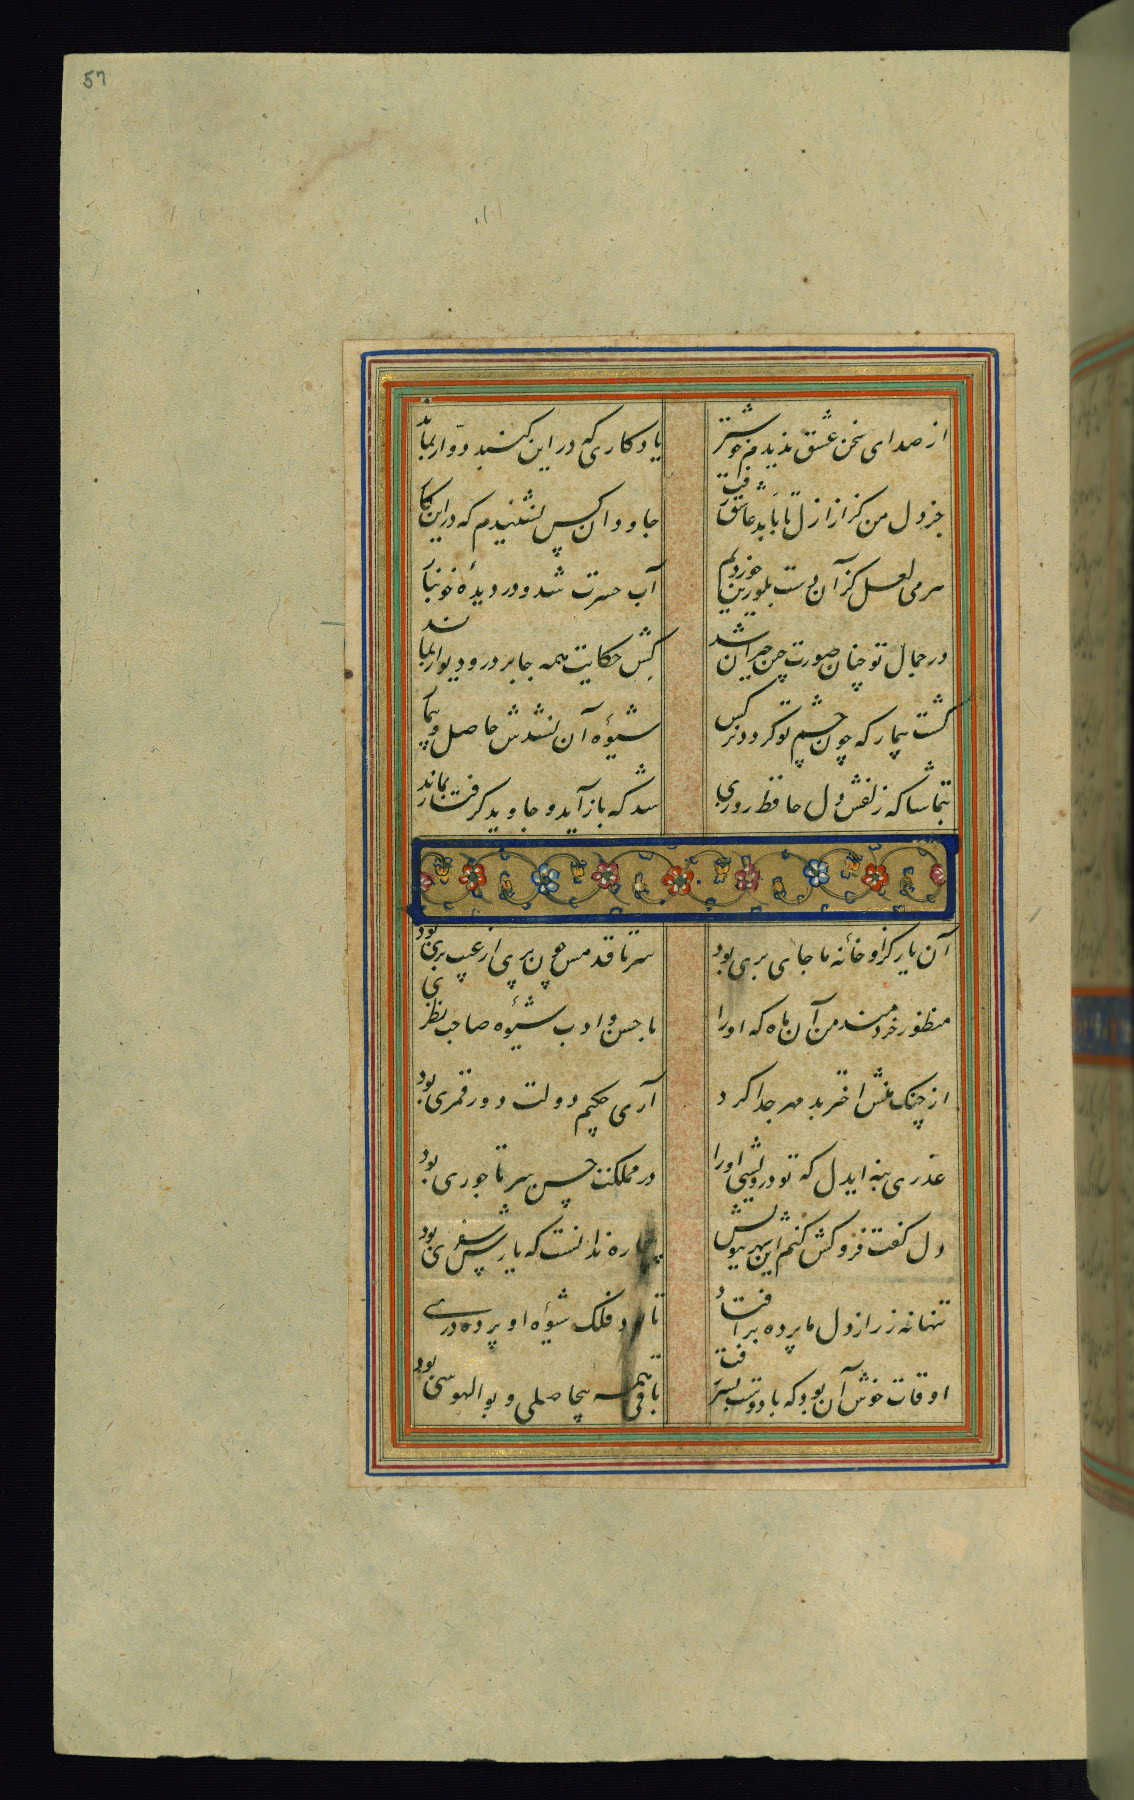 57
از صدای سخن عشق ندیدم خوشتر
یادکاری که در این کنبد دوار بماند
جز دل من کز ازل تا بابد عاشق رفت
جاودان کس نشنیدم که در این کار
هر می لعل کز آن دست بلورین خوردیم
آب حسرت شد و در دیدهٔ خونبار
در جمال تو چنان صورت چین حیران شد
کش حکایت همه جا بر در و دیوار بماند
کشت بیمار که چون چشم تو کردد نرکس
شیوهٔ آن نشدش حاصل و بیمار
بتماشاکه زلفش دل حافظ روزی
شد که باز آید و جاوید کرفتار بماند
آن یار کزاو خانهٔ ما جای پری بود
سر تا قدمش چون پری از عیب بری بود
منظور خردمند من آن ماه که اورا
با حسن و ادب شیوهٔ صاحب نظری
از چنک منش اختر بد مهر جدا کرد
آری چکنم دولت دور قمری بود
عذری بنه ایدل که تو درویشی اورا
در مملکت حسن سر تاجوری بود
دل کفت فروکش کنم این شهر ببویش
بیچاره ندانست که یارش سفری بود
تنها نه ز راز دل ما پرده بر افتاد
تا بود فلک شیوهٔ او پرده دری
اوقات خوش آن بود که با دوست بسر رفت
باقی همه بیحاصلی و بوالهوسی بود